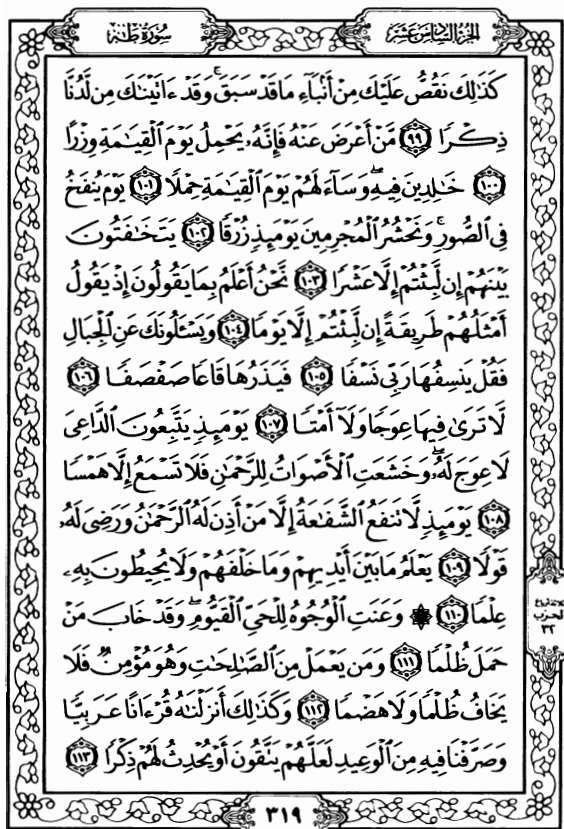 سُورَةُ طه
الجُزْءُ السَّادِسَ عَشَرَ
كَذَٰلِكَ نَقُصُّ عَلَيْكَ مِنْ أَنۢبَآءِ مَا قَدْ سَبَقَ ۚ وَقَدْ ءَاتَيْنَٰكَ مِن لَّدُنَّا
ذِكْرًا ٩٩ مَّنْ أَعْرَضَ عَنْهُ فَإِنَّهُۥ يَحْمِلُ يَوْمَ ٱلْقِيَٰمَةِ وِزْرًا
١٠٠ خَٰلِدِينَ فِيهِ ۖ وَسَآءَ لَهُمْ يَوْمَ ٱلْقِيَٰمَةِ حِمْلًا ١٠١ يَوْمَ يُنفَخُ
فِى ٱلصُّورِ ۚ وَنَحْشُرُ ٱلْمُجْرِمِينَ يَوْمَئِذٍ زُرْقًا ١٠٢ يَتَخَٰفَتُونَ
بَيْنَهُمْ إِن لَّبِثْتُمْ إِلَّا عَشْرًا ١٠٣ نَّحْنُ أَعْلَمُ بِمَا يَقُولُونَ إِذْ يَقُولُ
أَمْثَلُهُمْ طَرِيقَةً إِن لَّبِثْتُمْ إِلَّا يَوْمًا ١٠٤ وَيَسْـَٔلُونَكَ عَنِ ٱلْجِبَالِ
فَقُلْ يَنسِفُهَا رَبِّى نَسْفًا ١٠٥ فَيَذَرُهَا قَاعًا صَفْصَفًا ١٠٦
لَّا تَرَىٰ فِيهَا عِوَجًا وَلَآ أَمْتًا ١٠٧ يَوْمَئِذٍ يَتَّبِعُونَ ٱلدَّاعِىَ
لَا عِوَجَ لَهُۥ ۖ وَخَشَعَتِ ٱلْأَصْوَاتُ لِلرَّحْمَٰنِ فَلَا تَسْمَعُ إِلَّا هَمْسًا
١٠٨ يَوْمَئِذٍ لَّا تَنفَعُ ٱلشَّفَٰعَةُ إِلَّا مَنْ أَذِنَ لَهُ ٱلرَّحْمَٰنُ وَرَضِىَ لَهُۥ
قَوْلًا ١٠٩ يَعْلَمُ مَا بَيْنَ أَيْدِيهِمْ وَمَا خَلْفَهُمْ وَلَا يُحِيطُونَ بِهِۦ
عِلْمًا ١١٠ ۞ وَعَنَتِ ٱلْوُجُوهُ لِلْحَىِّ ٱلْقَيُّومِ ۖ وَقَدْ خَابَ مَنْ
حَمَلَ ظُلْمًا ١١١ وَمَن يَعْمَلْ مِنَ ٱلصَّٰلِحَٰتِ وَهُوَ مُؤْمِنٌ فَلَا
يَخَافُ ظُلْمًا وَلَا هَضْمًا ١١٢ وَكَذَٰلِكَ أَنزَلْنَٰهُ قُرْءَانًا عَرَبِيًّا
وَصَرَّفْنَا فِيهِ مِنَ ٱلْوَعِيدِ لَعَلَّهُمْ يَتَّقُونَ أَوْ يُحْدِثُ لَهُمْ ذِكْرًا ١١٣
الحزب
٣٢
٣١٩